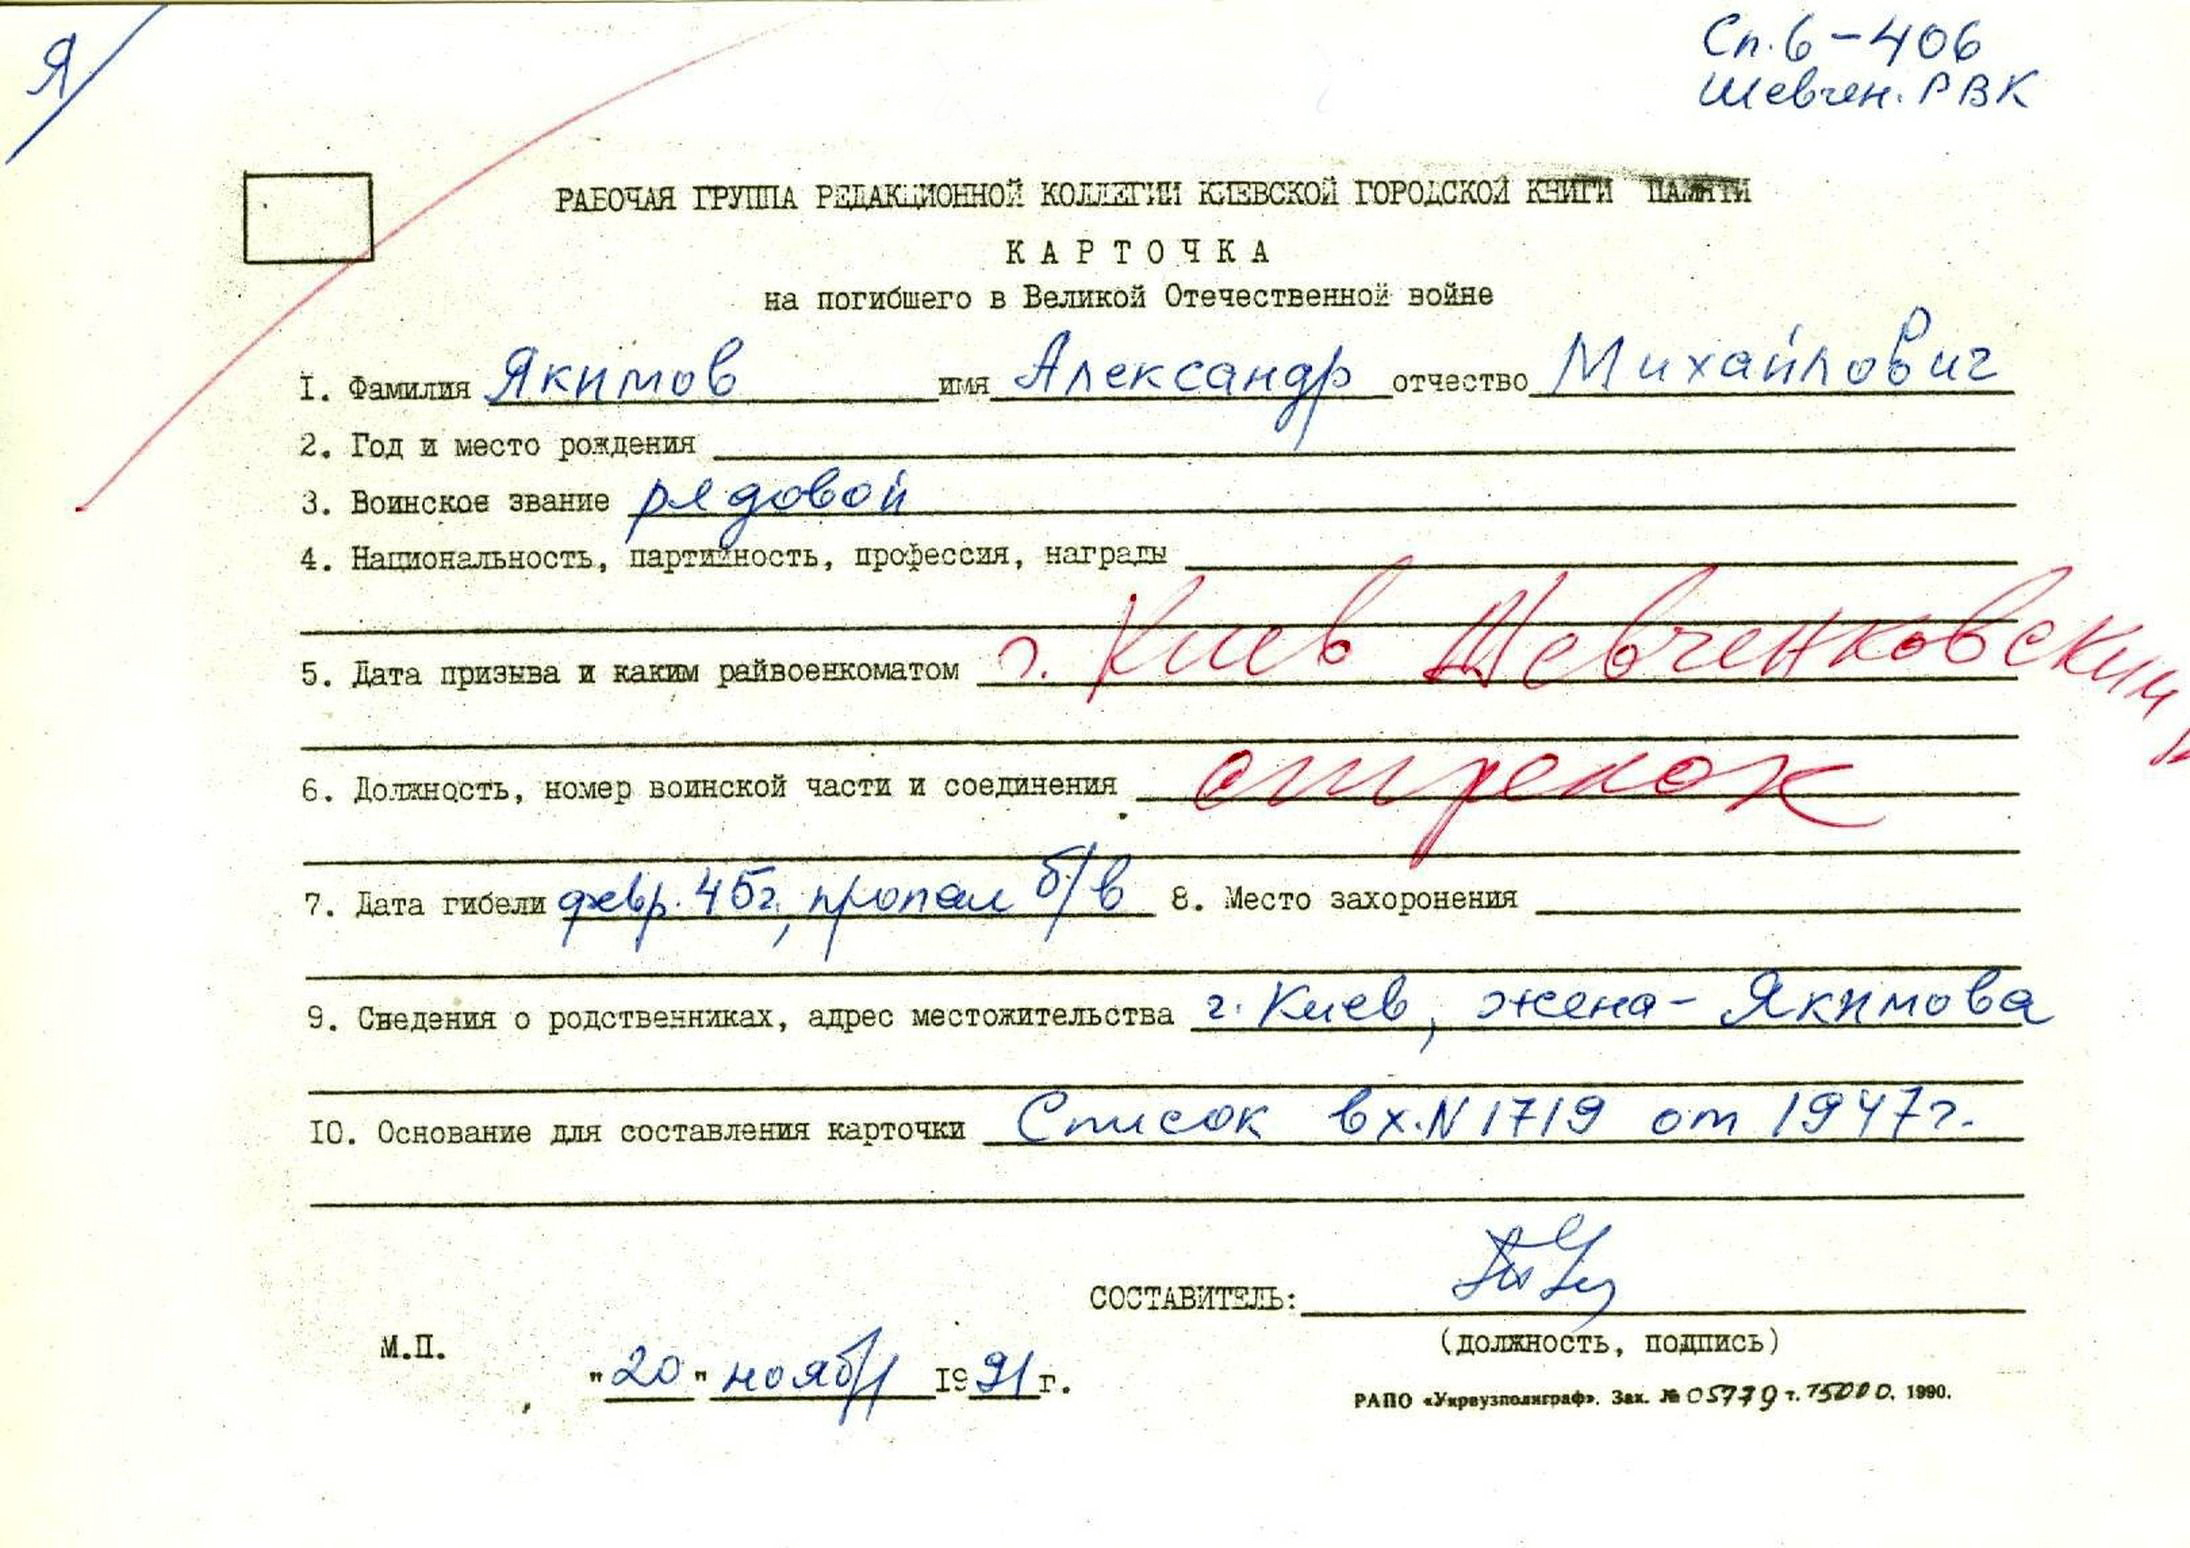 Я
Сп. 6-406
Шевчен. РВК
РАБОЧАЯ ГРУППА РЕДАКЦИОННОЙ КОЛЛЕГИИ КИЕВСКОЙ ГОРОДСКОЙ КНИГИ ПАМЯТИ
КАРТОЧКА
на погибшего в Великой Отечественной войне
I. Фамилия Якимов имя Александр отчество Михайлович
2. Год и место рождения
3. Воинское звание рядовой
4. Национальность, партийность, профессия, награды
5. Дата призыва и каким райвоенкоматом г. Киев Шевченковский
6. Должность, номер воинской части и соединения стрелок
7. Дата гибели февр. 45г, пропал б/в 8. Место захоронения
9. Сведения о родственниках, адрес местожительства г. Киев, жена - Якимова
IO. Основание для составления карточки Список вх. N 1719 от 1947г.
СОСТАВИТЕЛЬ:
(должность, подпись)
М.П.
"20" нояб 1991г.
РАПО «Укрвузполиграф». Зак. № 05779 т. 15000. 1990.